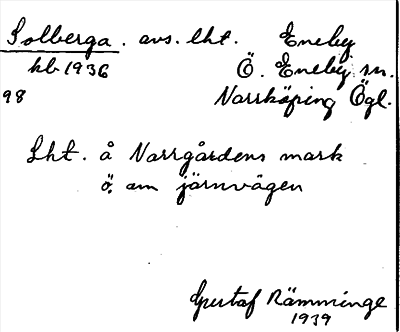 Solberga. avs. lht. Eneby
kb 1936 Ö. Eneby sn.
98 Norrköping Ögl.
Lht. å Norrgårdens mark
ö. om järnvägen
Gustaf Rämminge
1939